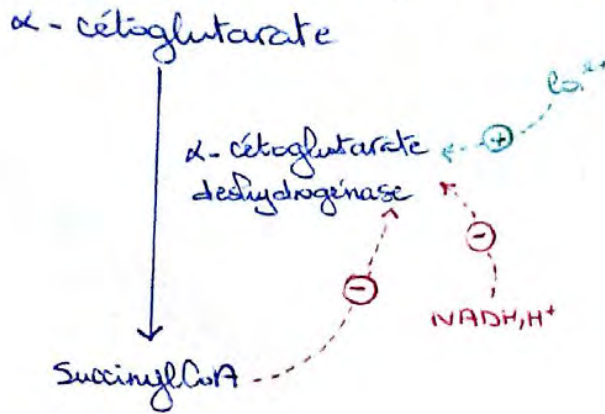 α - cétoglutarate
Ca²⁺
+
α - cétoglutarate
deshydrogénase
-
-
NADH,H⁺
Succinyl CoA